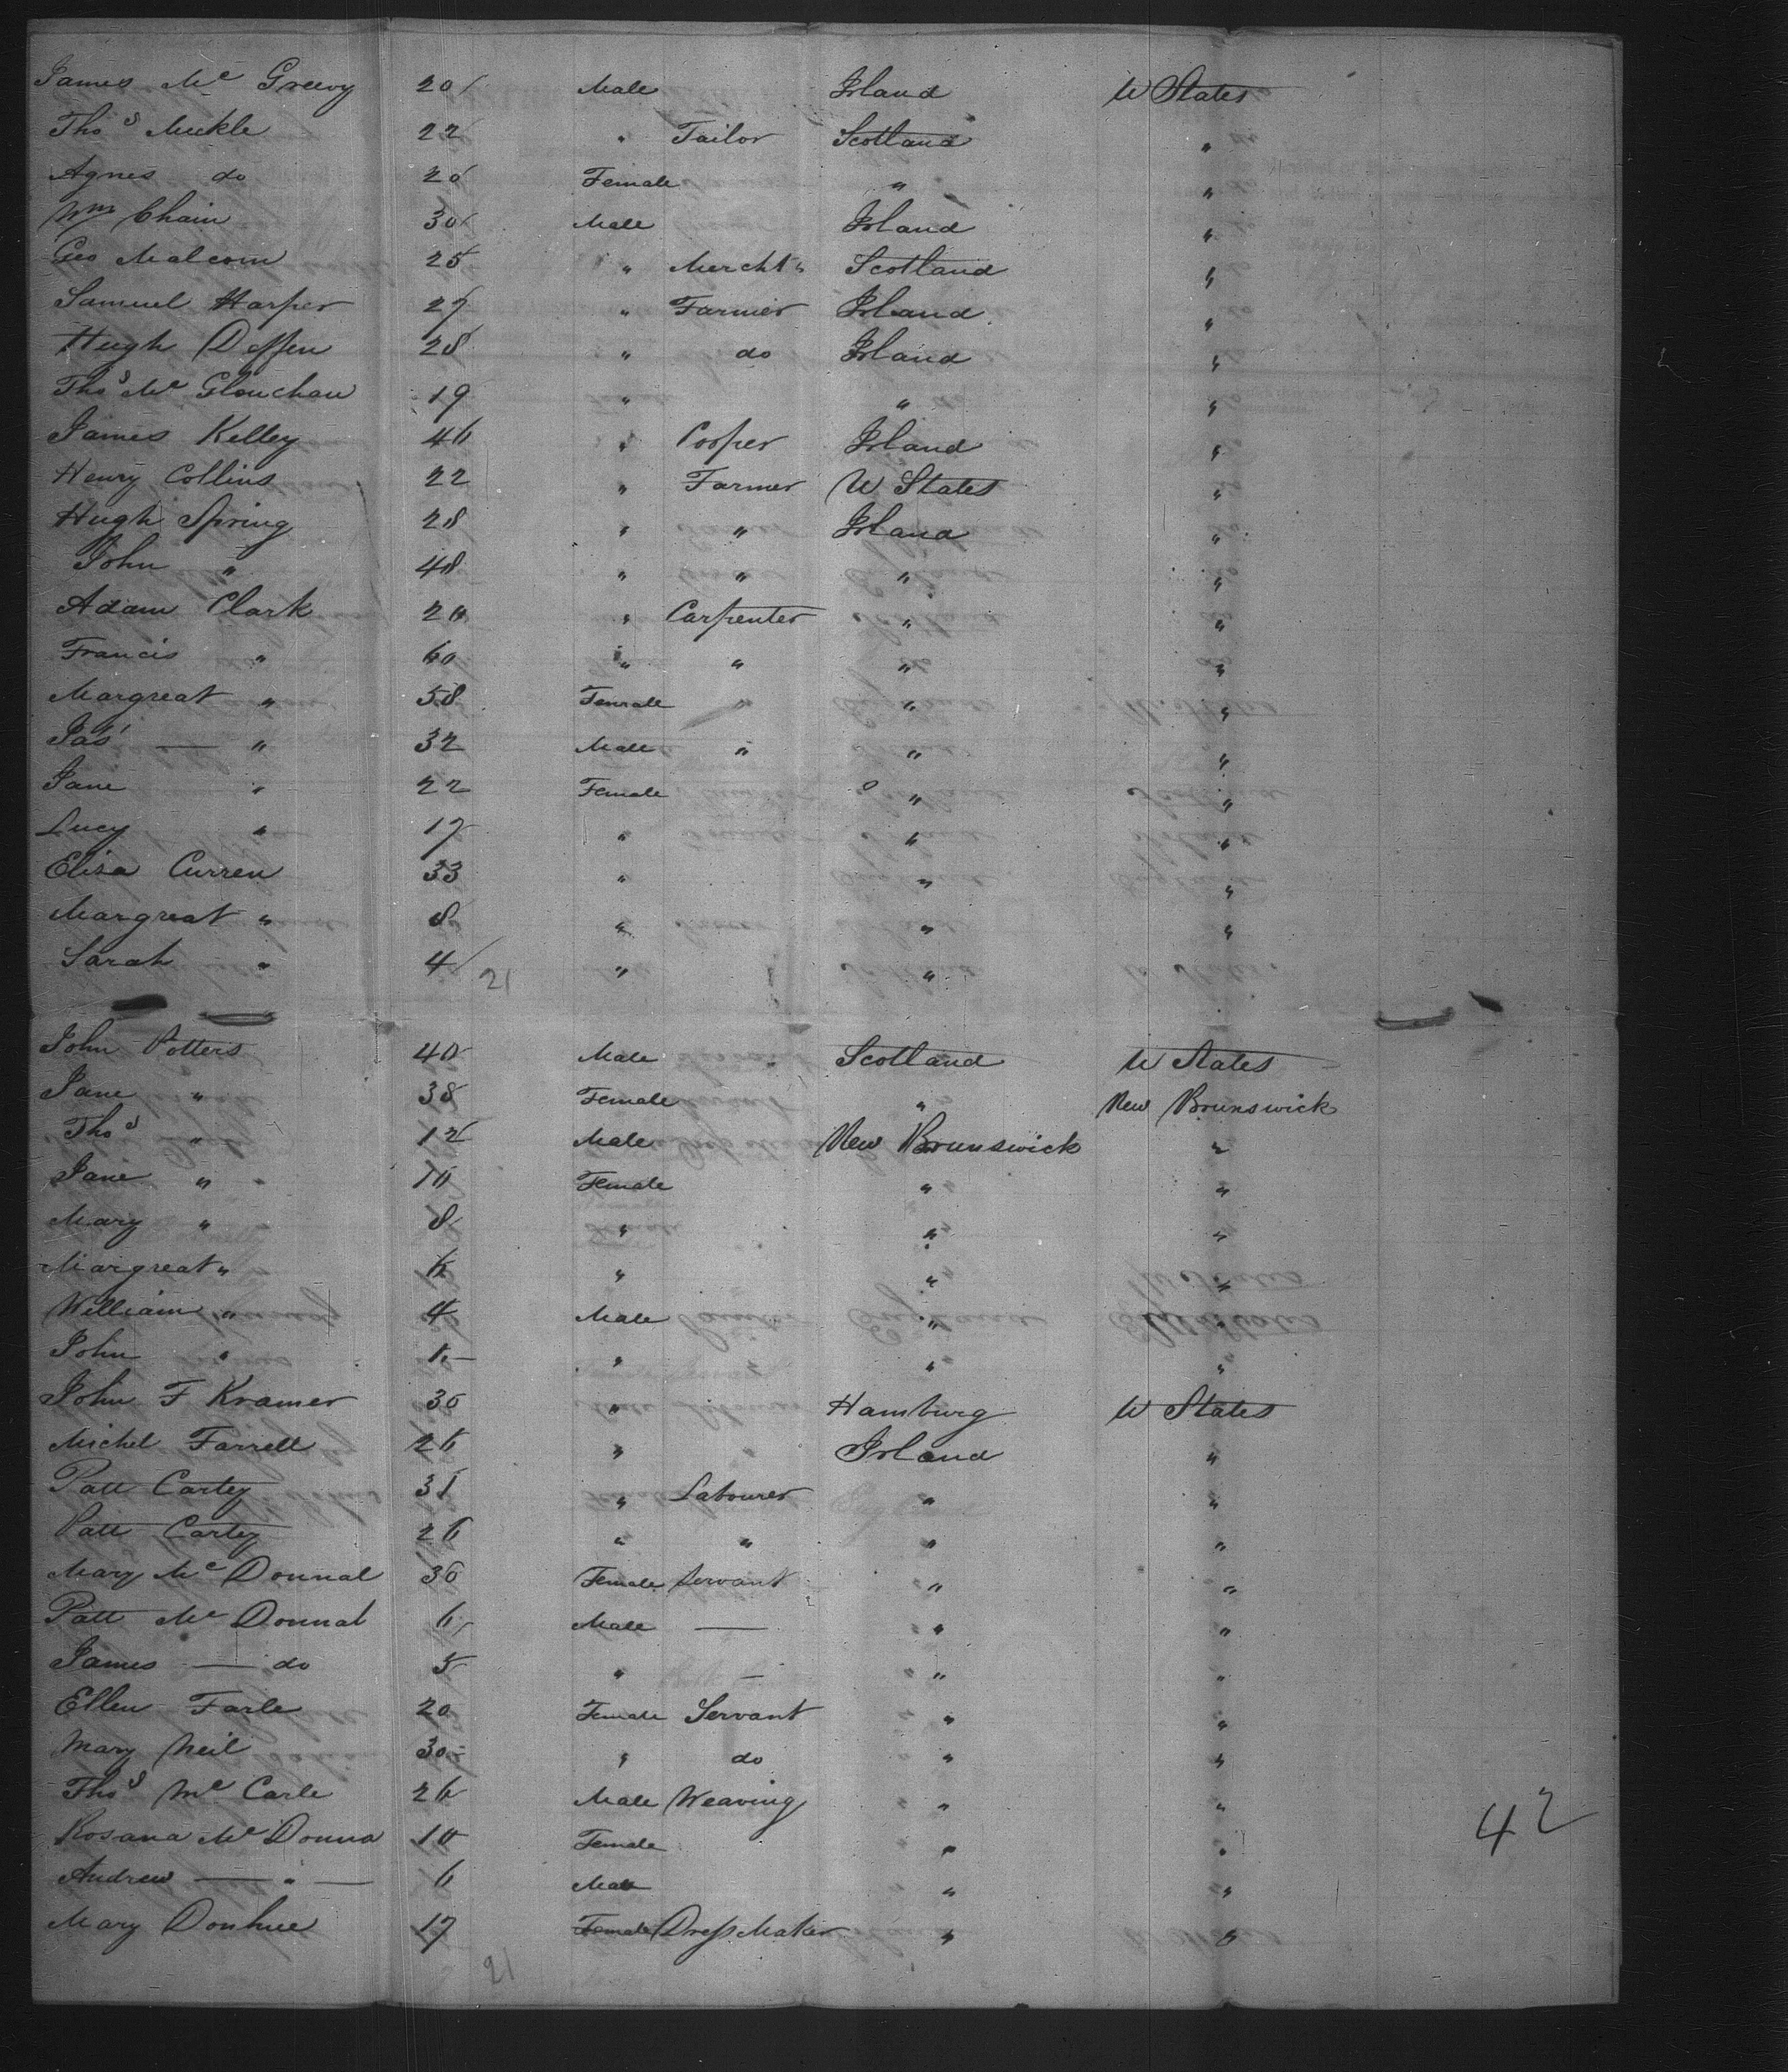 James Mc Greevy 20 Male Irland U States
Thos Meekle 22 " Tailor Scotland "
Agnes do 20 Female " "
Wm Chain 30 Male Irland "
Geo Malcom 25 " Mercht " Scotland "
Samuel Harper 27 " Farmer Irland "
Hugh Deffen 28 " do Irland "
Thos Mc Glouchan 19 " " "
James Kelley 46 " Cooper Irland "
Henry Collins 22 " Farmer U States "
Hugh Spring 28 " " Irland "
John " 48 " " " "
Adam Clark 20 " Carpenter " "
Francis " 60 " " " "
Margreat " 58 Female " " "
Jas — " 32 Male " " "
Jane " 22 Female " "
Lucy " 17 " " "
Eliza Curren 33 " " "
Margreat " 8 " " "
Sarah " 4 21 " "
John Potters 40 Male Scotland U States
Jane " 38 Female " New Brunswick
Thos " 12 Male New Brunswick "
Jane " 10 Female " "
Mary " 8 " " "
Margreat " " " "
William " 4 Male " "
John " " " "
John F Kramer 30 " Hamburg U States
Michel Farrell 26 " Irland "
Patt Cartey 31 " Labourer " "
Patt Cartey 26 " " " "
Mary Mc Donnal 30 Female Servant " "
Patt Mc Donnal 6 Male — " "
James — do 5 " — " "
Ellen Farle 20 Female Servant " "
Mary Neil 30 " do " "
Thos Mc Carle 26 Male Weaving " "
Rosana Mc Donna 10 Female " "
42
Andrew — " — 6 Male " "
Mary Donhue 17 Female Dress Maker " "
21